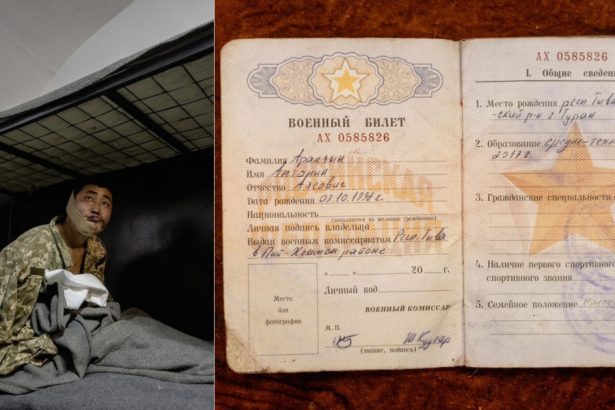 ВОЕННЫЙ БИЛЕТ
АХ 0585826
Фамилия Аранчын
Имя
Отчество
Дата рождения
Национальность
(заполняется по желанию гражданина)
Личная подпись владельца
Выдан военным комиссариатом Респ. Тыва
районе
20 г.
Личный код
ВОЕННЫЙ КОМИССАР
Место
для
фотографии
М. П.
(звание, подпись)
АХ 0585826
I. Общие сведе
1. Место рождения респ. Тыва
г. Туран
2. Образование средне-техн
2017г
3. Гражданские специальности
4. Наличие первого спортивного
спортивного звания
5. Семейное положение